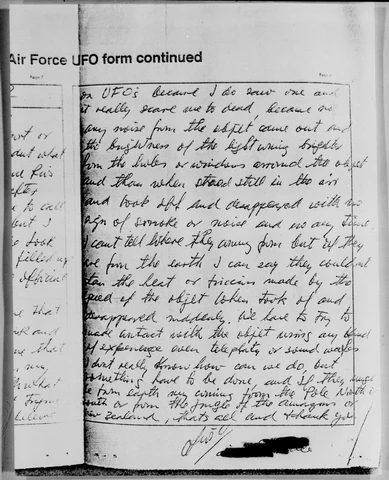 Air Force UFO form continued
on UFOs because I do saw one and
it really scare me to dead, because no
any noise from the objet came out and
the brighness of the light wining brighter
from the holes or windows arround the objet
and than when stood still in the air
and took off and desappeared with no
sign of smoke or noise and no any time.
I cant tell where they coming from but if they
are from the earth I can say they could not
stan the heat or friccion made by the
speed of the objet when took of and
desappeared suddenly. We have to try to
made contact with the objet using any kind
of experience even teleplaty or sound waves
I dont really know how can we do, but
something have to be done, and if they migth
be from earth my coming from the Pole North or
south or from the jungle of the amazons or
new zealand, thats all and thank you
ort or
out what
to call
but I
took
filled up
official
that
and
that
my
what